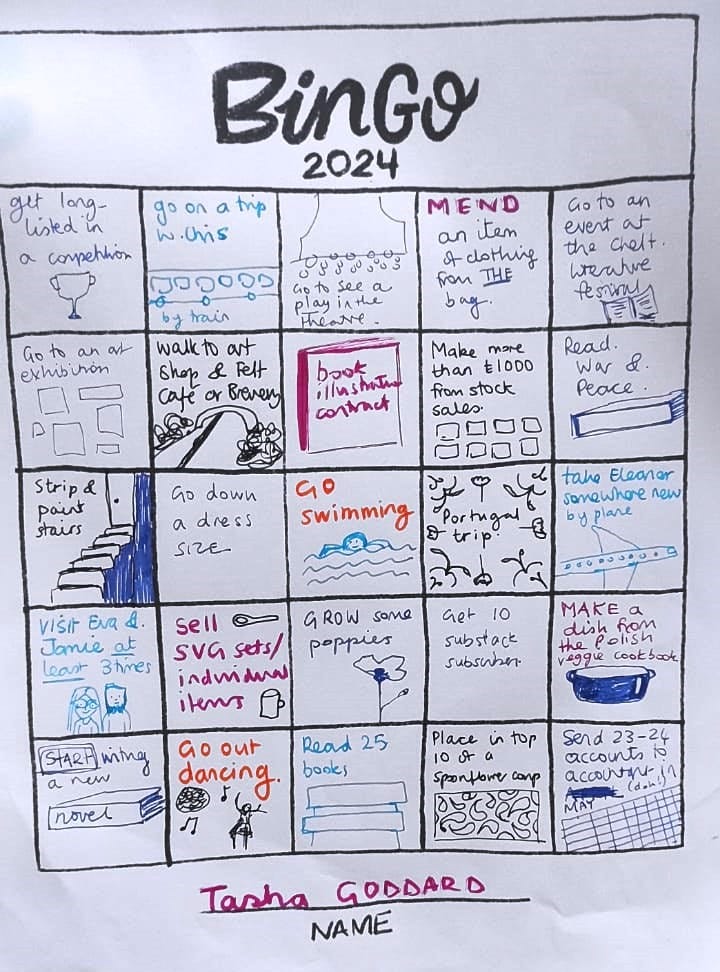 BinGo
2024
get long-
listed in
a competition
go on a trip
w. Chris
by train
Go to see a
play in the
theatre.
MEND
an item
of clothing
from THE
bag.
Go to an
event at
the Chelt.
literature
festival
Go to an art
exhibition
Walk to art
shop & Felt
Café or Brewery
book
illustration
contract
Make more
than £1000
from stock
sales.
Read.
War &.
Peace.
Strip &
paint
stairs
Go down
a dress
SIZE
GO
swimming
Portugal
trip.
take Eleanor
somewhere new
by plane
VISIT Eva &.
Jamie at
least 3 times
Sell
SVG sets/
individual
items
GROW some
poppies
Get 10
substack
subscriber.
MAKE a
dish from
the Polish
veggie cookbook
START writing
a new
novel
Go out
dancing.
Read 25
books
Place in top
10 of a
spoonflower comp
Send 23-24
accounts to
accountant in
(doh!)
MAY
Tasha GODDARD
NAME